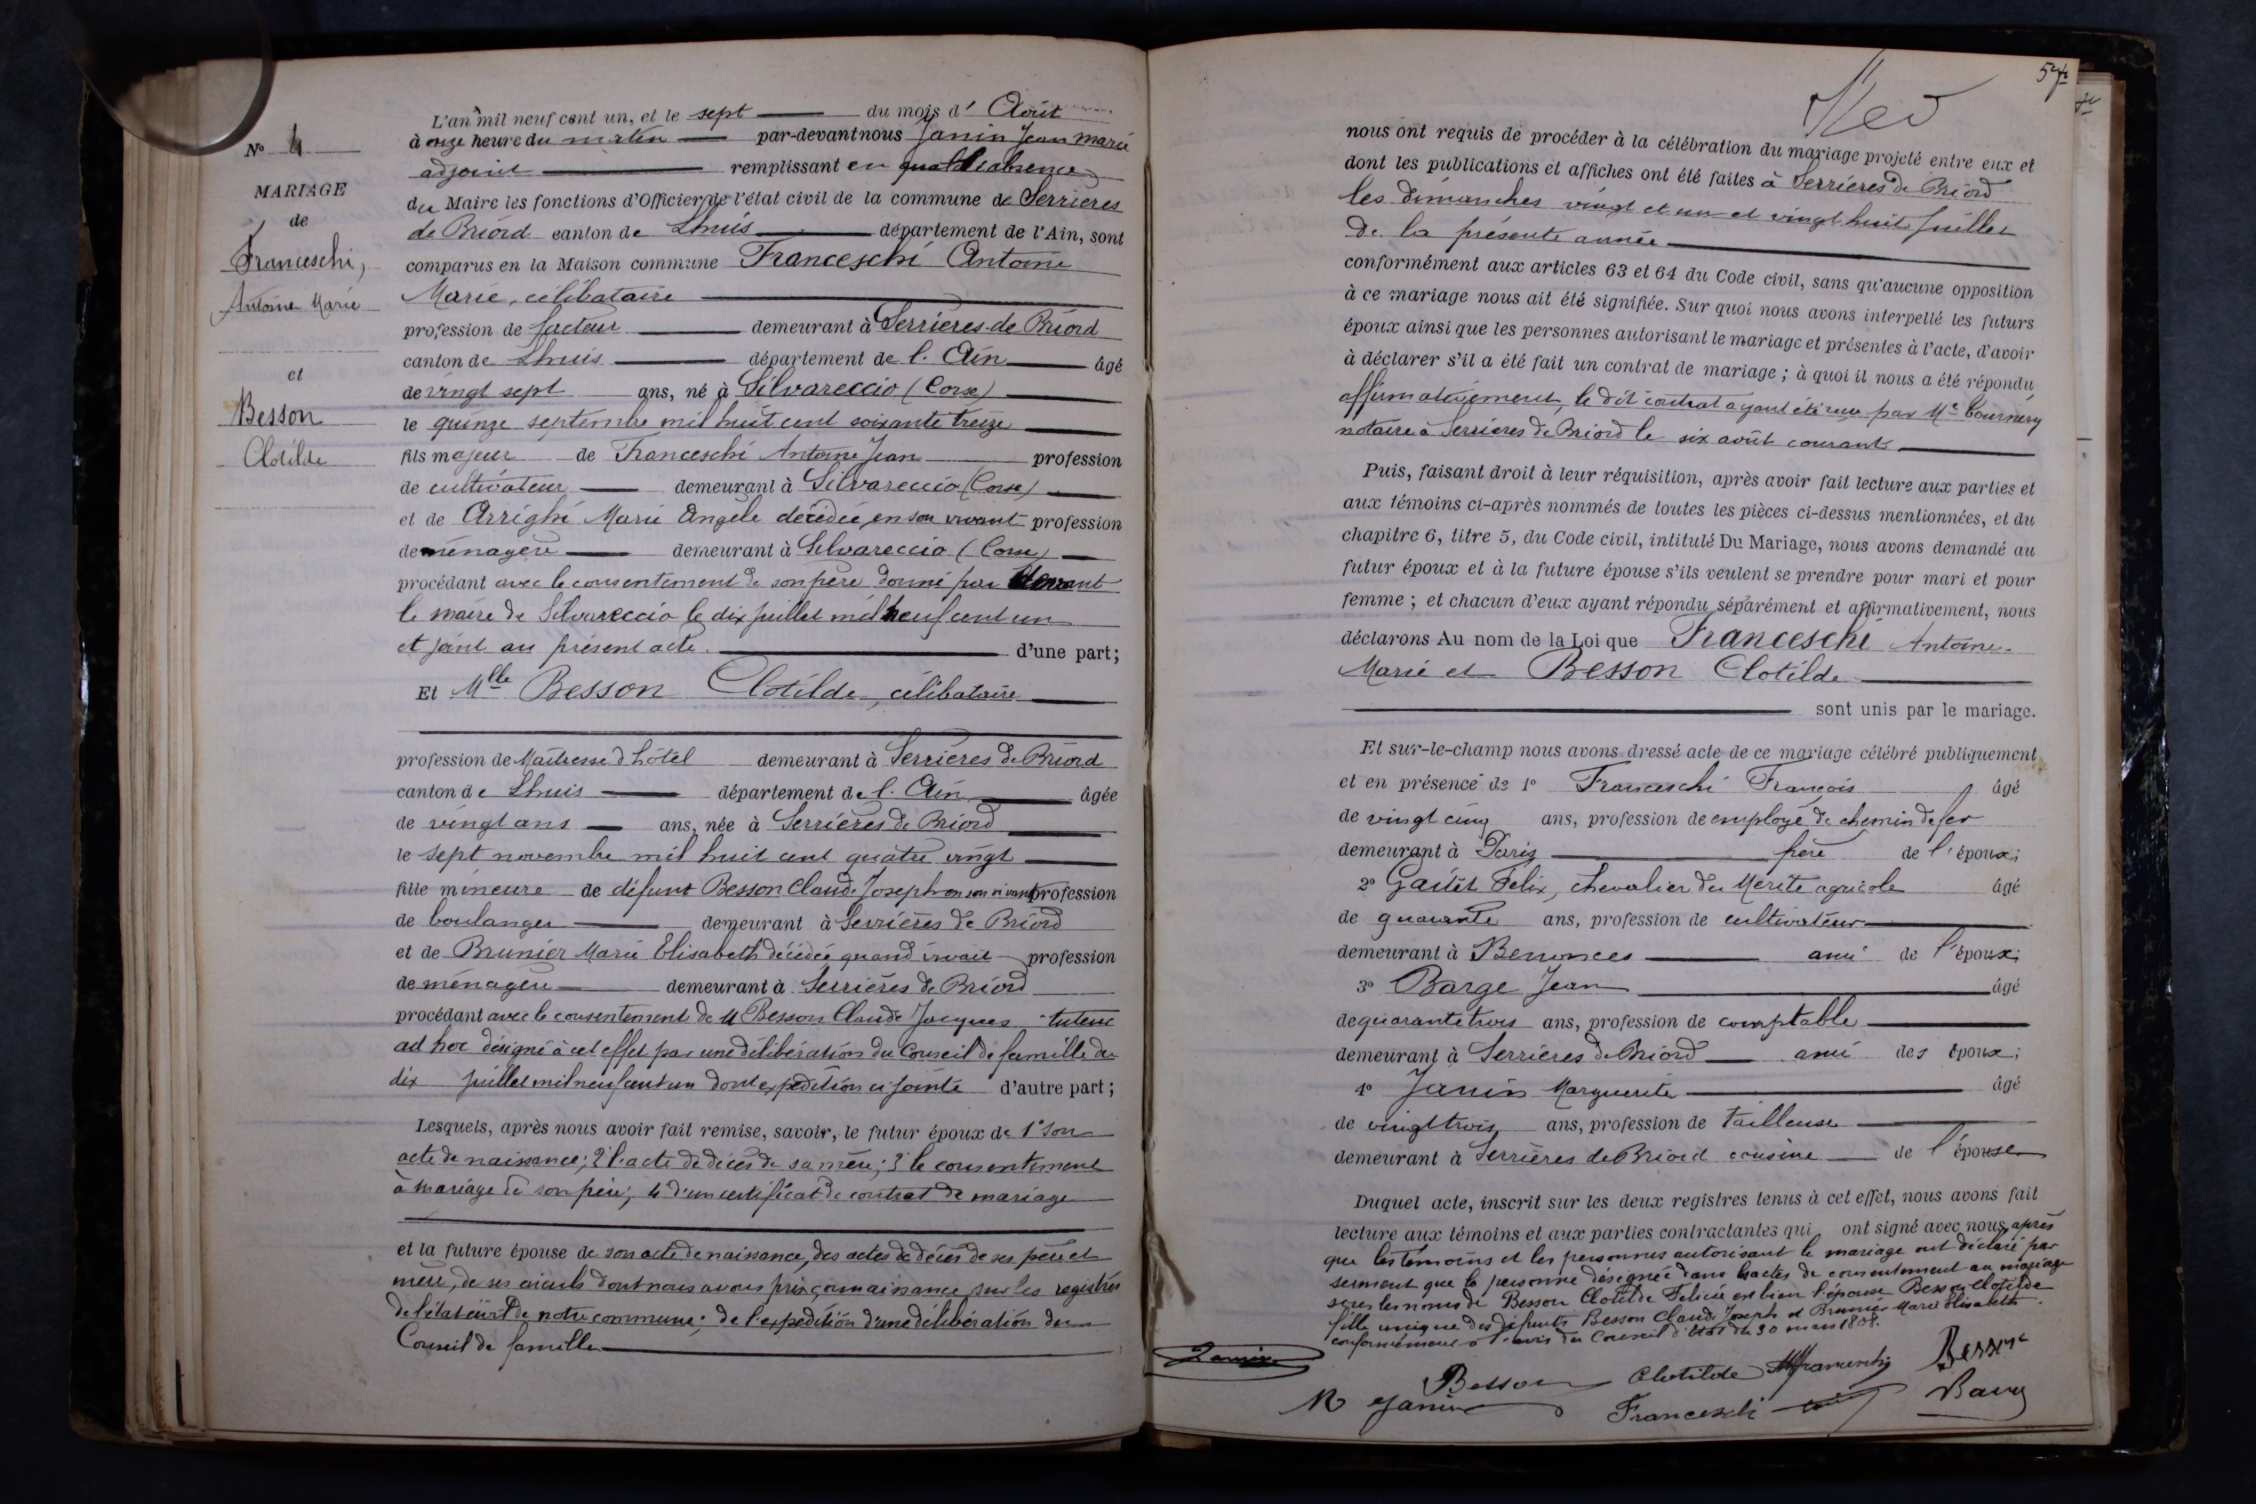 N° 4
MARIAGE
de
Franceschi,
Antoine Marie
et
Besson
Clotilde
L'an mil neuf cent un, et le sept du mois d' Août
à onze heure du matin par-devant nous Janin Jean Marie
adjoint remplissant en l'absence
du Maire les fonctions d'Officier de l'état civil de la commune de Serrières
de Briord canton de Lhuis département de l'Ain, sont
comparus en la Maison commune Franceschi Antoine
Marie, célibataire
profession de facteur demeurant à Serrières-de Briord
canton de Lhuis département de l'Ain âgé
de vingt sept ans, né à Silvareccio (Corse)
le quinze septembre mil huit cent soixante treize
fils majeur de Franceschi Antoine Jean profession
de cultivateur demeurant à Silvareccio (Corse)
et de Arrighi Marie Angele décédée, en son vivant profession
de ménagère demeurant à Silvareccio (Corse)
procédant avec le consentement de son père donné par devant
le maire de Silvareccio le dix juillet mil neuf cent un
et joint au présent acte. d'une part;
Et Mlle Besson Clotilde, célibataire
profession de Maîtresse d'hôtel demeurant à Serrières de Briord
canton de Lhuis département de l'Ain âgée
de vingt ans ans, née à Serrières de Briord
le sept novembre mil huit cent quatre vingt
fille mineure de défunt Besson Claude Joseph en son vivant profession
de boulanger demeurant à Serrières de Briord
et de Brunier Marie Elisabeth décédée quand vivait profession
de ménagère demeurant à Serrières de Briord
procédant avec le consentement de M Besson Claude Jacques tuteur
ad hoc désigné à cet effet par une délibération du Conseil de famille du
dix juillet mil neuf cent un dont expédition ci jointe d'autre part;
Lesquels, après nous avoir fait remise, savoir, le futur époux de 1° son
acte de naissance; 2° l'acte de décès de sa mère; 3° le consentement
à mariage de son père; 4° d'un certificat de contrat de mariage
et la future épouse de son acte de naissance, des actes de décès de ses père et
mère, de ses aieuls dont nous avons pris connaissance sur les registres
de l'état civil de notre commune; de l'expédition d'une délibération du
Conseil de famille
57
nous ont requis de procéder à la célébration du mariage projeté entre eux et
dont les publications et affiches ont été faites à Serrières de Briord
les dimanches vingt et un et vingt huit juillet
de la présente année
conformément aux articles 63 et 64 du Code civil, sans qu'aucune opposition
à ce mariage nous ait été signifiée. Sur quoi nous avons interpellé les futurs
époux ainsi que les personnes autorisant le mariage et présentes à l'acte, d'avoir
à déclarer s'il a été fait un contrat de mariage; à quoi il nous a été répondu
affirmativement, le dit contrat ayant été reçu par Me
notaire à Serrières de Briord le six août courant
Puis, faisant droit à leur réquisition, après avoir fait lecture aux parties et
aux témoins ci-après nommés de toutes les pièces ci-dessus mentionnées, et du
chapitre 6, titre 5, du Code civil, intitulé Du Mariage, nous avons demandé au
futur époux et à la future épouse s'ils veulent se prendre pour mari et pour
femme; et chacun d'eux ayant répondu séparément et affirmativement, nous
déclarons Au nom de la Loi que Franceschi Antoine
Marie et Besson Clotilde
sont unis par le mariage.
Et sur-le-champ nous avons dressé acte de ce mariage célébré publiquement
et en présence de 1° Franceschi François âgé
de vingt cinq ans, profession de employé de chemin de fer
demeurant à Paris frère de l'époux;
2° Felix, chevalier du Mérite agricole âgé
de quarante ans, profession de cultivateur
demeurant à Benonces ami de l'époux;
3° Barge Jean âgé
de quarante trois ans, profession de comptable
demeurant à Serrières de Briord ami des époux;
4° Janin Marguerite âgé
de vingt trois ans, profession de tailleuse
demeurant à Serrières de Briord cousine de l'épouse
Duquel acte, inscrit sur les deux registres tenus à cet effet, nous avons fait
lecture aux témoins et aux parties contractantes qui ont signé avec nous après
que les témoins et les personnes autorisant le mariage ont déclaré par
serment que la personne désignée dans les actes de consentement au mariage
sous les noms de Besson Clotilde Felicie est bien l'épouse Besson Clotilde
fille unique des défunts Besson Claude Joseph et Brunier Marie Elisabeth.
conformément à l'avis du Conseil d'état du 30 mars 1808.
Janin
Besson Clotilde Besson
M Janin Franceschi